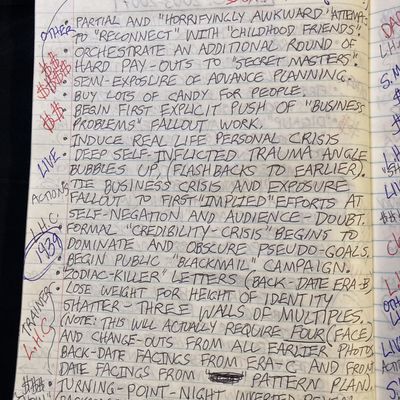 OTHER
• PARTIAL AND "HORRIFYINGLY AWKWARD" ATTEMPTS
TO "RECONNECT" WITH "CHILDHOOD FRIENDS".
• ORCHESTRATE AN ADDITIONAL ROUND OF
HARD PAY-OUTS TO "SECRET MASTERS".
• SEMI-EXPOSURE OF ADVANCE PLANNING.
• BUY LOTS OF CANDY FOR PEOPLE.
• BEGIN FIRST EXPLICIT PUSH OF "BUSINESS
PROBLEMS" FALLOUT WORK.
• INDUCE REAL LIFE PERSONAL CRISIS
LIVE
• DEEP SELF-INFLICTED TRAUMA ANGLE
BUBBLES UP, (FLASHBACKS TO EARLIER).
ACTIONS
• TIE BUSINESS CRISIS AND EXPOSURE
FALLOUT TO FIRST "IMPLIED" EFFORTS AT
SELF-NEGATION AND AUDIENCE-DOUBT.
LHC
• FORMAL "CREDIBILITY-CRISIS" BEGINS TO
DOMINATE AND OBSCURE PSEUDO-GOALS.
1939
• BEGIN PUBLIC "BLACKMAIL" CAMPAIGN.
• "ZODIAC-KILLER" LETTERS (BACK-DATE ERA-B)
• LOSE WEIGHT FOR HEIGHT OF IDENTITY
SHATTER - THREE WALLS OF MULTIPLES.
TRAINER
LHC
(NOTE: THIS WILL ACTUALLY REQUIRE FOUR (FACE)
AND CHANGE-OUTS FROM ALL EARLIER PHOTOS
BACK-DATE FACINGS FROM ERA-C AND FROM
DATE FACINGS FROM PATTERN PLAN.
• TURNING-POINT-NIGHT INVERTED